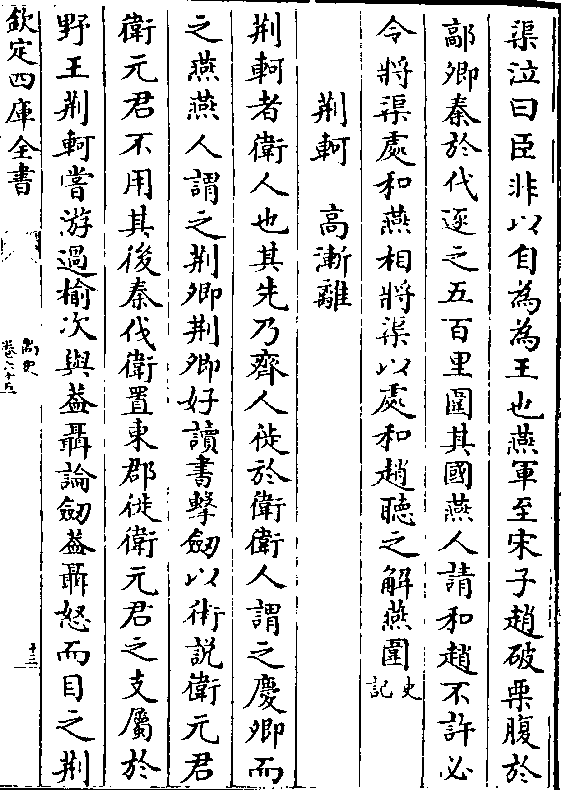 渠泣曰臣非以自為為王也燕軍至宋子趙破栗腹於
鄗卿秦於代逐之五百里圍其國燕人請和趙不許必
令將渠處和燕相將渠以處和趙聽之解燕圍史記
荆軻　高漸離
荆軻者衛人也其先乃齊人徙於衛衛人謂之慶卿而
之燕燕人謂之荆卿荆卿好讀書擊劒以術説衛元君
衛元君不用其後秦伐衛置東郡徙衛元君之支屬於
野王荆軻嘗游過榆次與葢聶論劒葢聶怒而目之荆
欽定四庫全書
尚史
卷六十五
十三